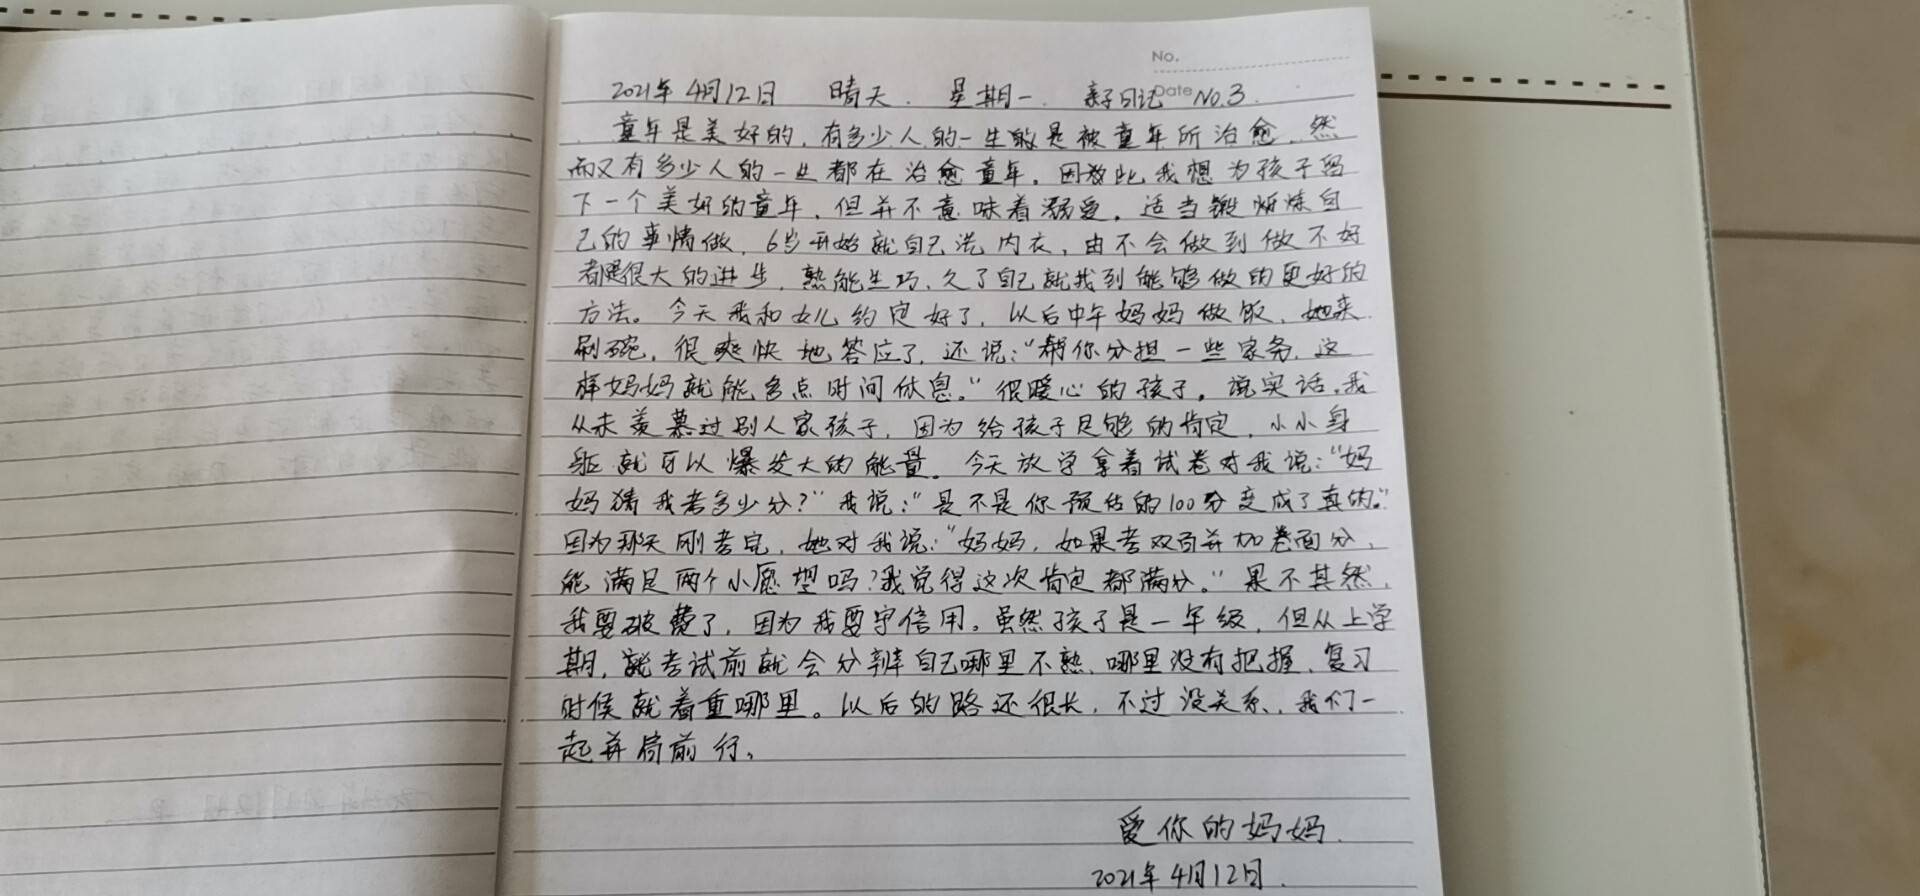 No.
Date
2021年4月12日 晴天. 星期一. 亲子日记 No.3.
童年是美好的,有多少人的一生的是被童年所治愈,然
而又有多少人的一生都在治愈童年。因故此我想为孩子留
下一个美好的童年,但并不意味着溺爱。适当锻炼自
己的事情做,6岁开始就自己洗内衣,由不会做到做不好
都是很大的进步,熟能生巧、久了自己就找到能够做的更好的
方法。今天我和女儿约定好了,以后中午妈妈做饭,她来
刷碗,很爽快地答应了,还说:“帮你分担一些家务,这
样妈妈就能多点时间休息。”很暖心的孩子。说实话,我
从未羡慕过别人家孩子,因为给孩子足够的肯定,小小身
躯就可以爆发大的能量。今天放学拿着试卷对我说:“妈
妈猜我考多少分?”我说:“是不是你预估的100分变成了真的。”
因为那天刚考完,她对我说:“妈妈,如果考双百并加卷面分,
能满足两个小愿望吗?我觉得这次肯定都满分。”果不其然,
我要破费了,因为我要守信用。虽然孩子是一年级,但从上学
期,就考试前就会分辨自己哪里不熟、哪里没有把握、复习
时候就着重哪里。以后的路还很长,不过没关系,我们一
起并肩前行。
爱你的妈妈.
2021年4月12日.